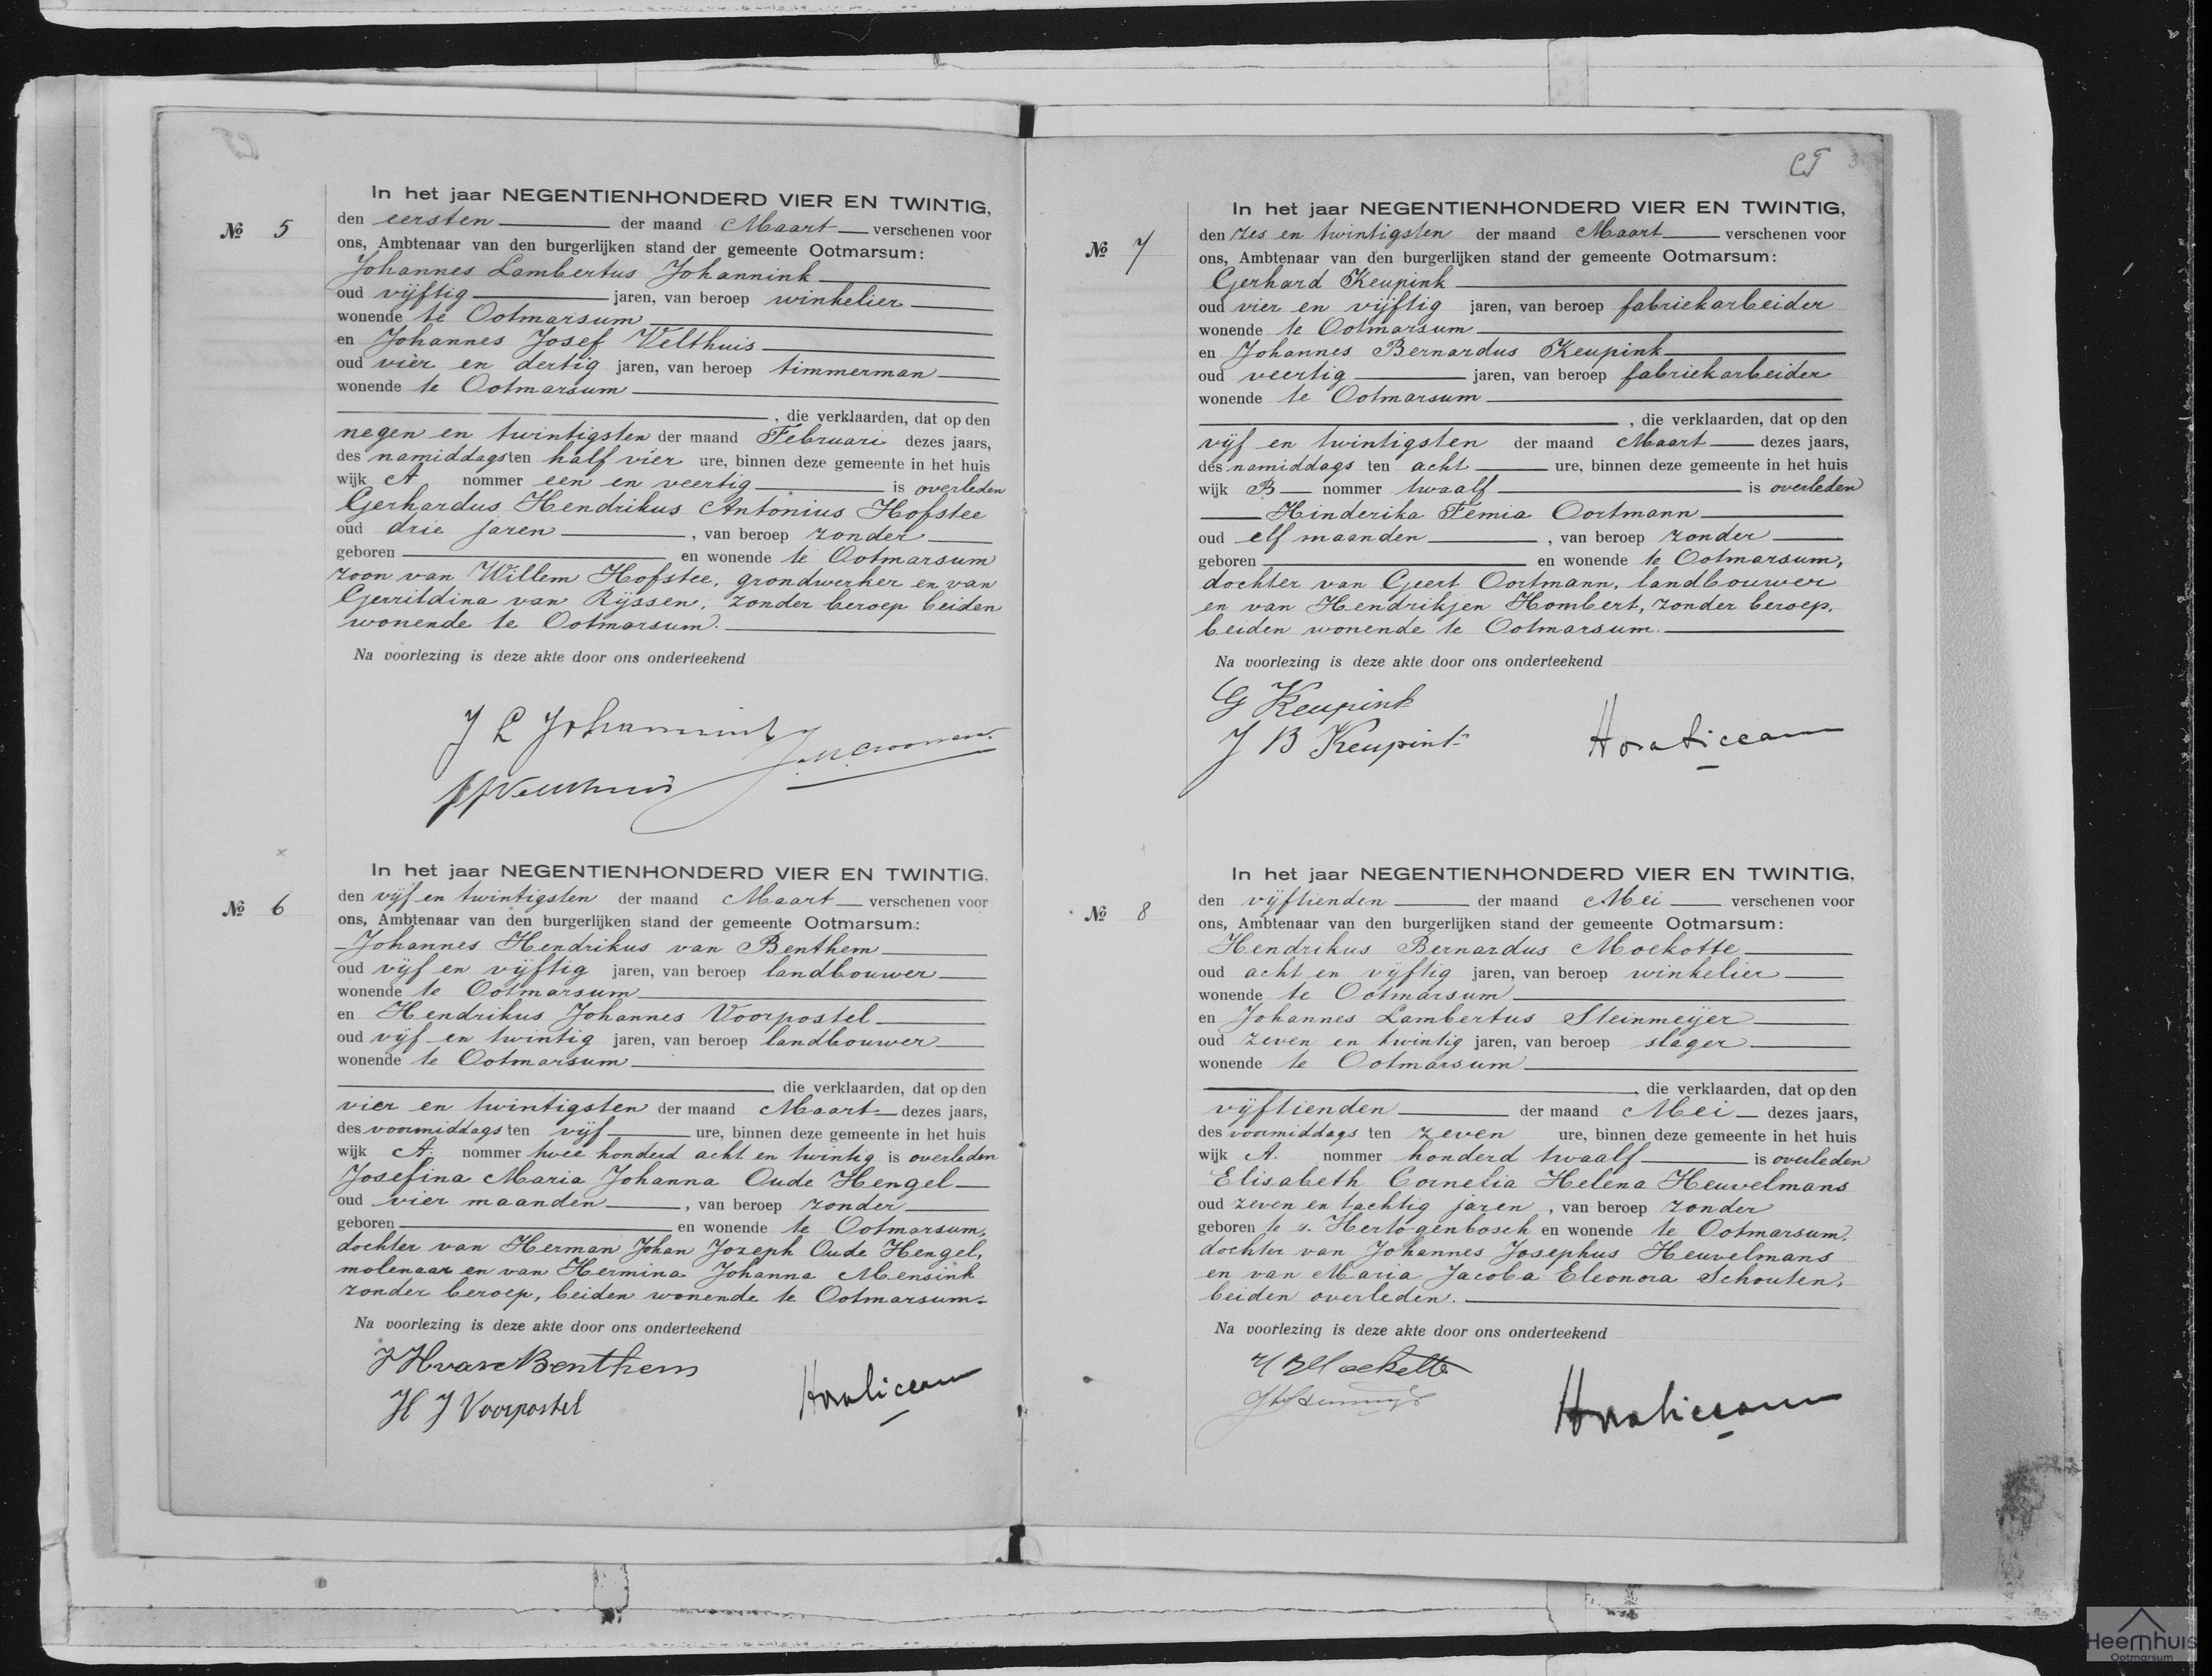 In het jaar NEGENTIENHONDERD VIER EN TWINTIG,
№ 5
den eersten der maand Maart verschenen voor
ons, Ambtenaar van den burgerlijken stand der gemeente Ootmarsum:
Johannes Lambertus Johannink
oud vijftig jaren, van beroep winkelier
wonende te Ootmarsum
en Johannes Josef Velthuis
oud vier en dertig jaren, van beroep timmerman
wonende te Ootmarsum
, die verklaarden, dat op den
negen en twintigsten der maand Februari dezes jaars,
des namiddags ten half vier ure, binnen deze gemeente in het huis
wijk A nommer een en veertig is overleden
Gerhardus Hendrikus Antonius Hofstee
oud drie jaren, van beroep zonder
geboren en wonende te Ootmarsum
zoon van Willem Hofstee, grondwerker en van
Gerritdina van Rijssen, zonder beroep beiden
wonende te Ootmarsum.
Na voorlezing is deze akte door ons onderteekend
J L Johannink
JJVelthuis
In het jaar NEGENTIENHONDERD VIER EN TWINTIG,
№ 6
den vijf en twintigsten der maand Maart verschenen voor
ons, Ambtenaar van den burgerlijken stand der gemeente Ootmarsum:
Johannes Hendrikus van Benthem
oud vijf en vijftig jaren, van beroep landbouwer
wonende te Ootmarsum
en Hendrikus Johannes Voorpostel
oud vijf en twintig jaren, van beroep landbouwer
wonende te Ootmarsum
die verklaarden, dat op den
vier en twintigsten der maand Maart dezes jaars,
des voormiddags ten vijf ure, binnen deze gemeente in het huis
wijk A. nommer twee honderd acht en twintig is overleden
Josefina Maria Johanna Oude Hengel
oud vier maanden, van beroep zonder
geboren en wonende te Ootmarsum,
dochter van Herman Johan Jozeph Oude Hengel,
molenaar en van Hermina Johanna Mensink
zonder beroep, beiden wonende te Ootmarsum.
Na voorlezing is deze akte door ons onderteekend
J H van Benthem
H J Voorpostel
3
In het jaar NEGENTIENHONDERD VIER EN TWINTIG,
№ 7
den zes en twintigsten der maand Maart verschenen voor
ons, Ambtenaar van den burgerlijken stand der gemeente Ootmarsum:
Gerhard Keupink
oud vier en vijftig jaren, van beroep fabriekarbeider
wonende te Ootmarsum
en Johannes Bernardus Keupink
oud veertig jaren, van beroep fabriekarbeider
wonende te Ootmarsum
, die verklaarden, dat op den
vijf en twintigsten der maand Maart dezes jaars,
des namiddags ten acht ure, binnen deze gemeente in het huis
wijk B nommer twaalf is overleden
Hinderika Femia Oortmann
oud elf maanden, van beroep zonder
geboren en wonende te Ootmarsum,
dochter van Geert Oortmann, landbouwer
en van Hendrikjen Hombert, zonder beroep,
beiden wonende te Ootmarsum.
Na voorlezing is deze akte door ons onderteekend
G Keupink
J B Keupink
In het jaar NEGENTIENHONDERD VIER EN TWINTIG,
№ 8
den vijftienden der maand Mei verschenen voor
ons, Ambtenaar van den burgerlijken stand der gemeente Ootmarsum:
Hendrikus Bernardus Mockotte
oud acht en vijftig jaren, van beroep winkelier
wonende te Ootmarsum
en Johannes Lambertus Steinmeijer
oud zeven en twintig jaren, van beroep slager
wonende te Ootmarsum
die verklaarden, dat op den
vijftienden der maand Mei dezes jaars,
des voormiddags ten zeven ure, binnen deze gemeente in het huis
wijk A. nommer honderd twaalf is overleden
Elisabeth Cornelia Helena Heuvelmans
oud zeven en tachtig jaren, van beroep zonder
geboren te s. Hertogenbosch en wonende te Ootmarsum,
dochter van Johannes Josephus Heuvelmans
en van Maria Jacoba Eleonora Schouten,
beiden overleden.
Na voorlezing is deze akte door ons onderteekend
Heemhuis
Ootmarsum